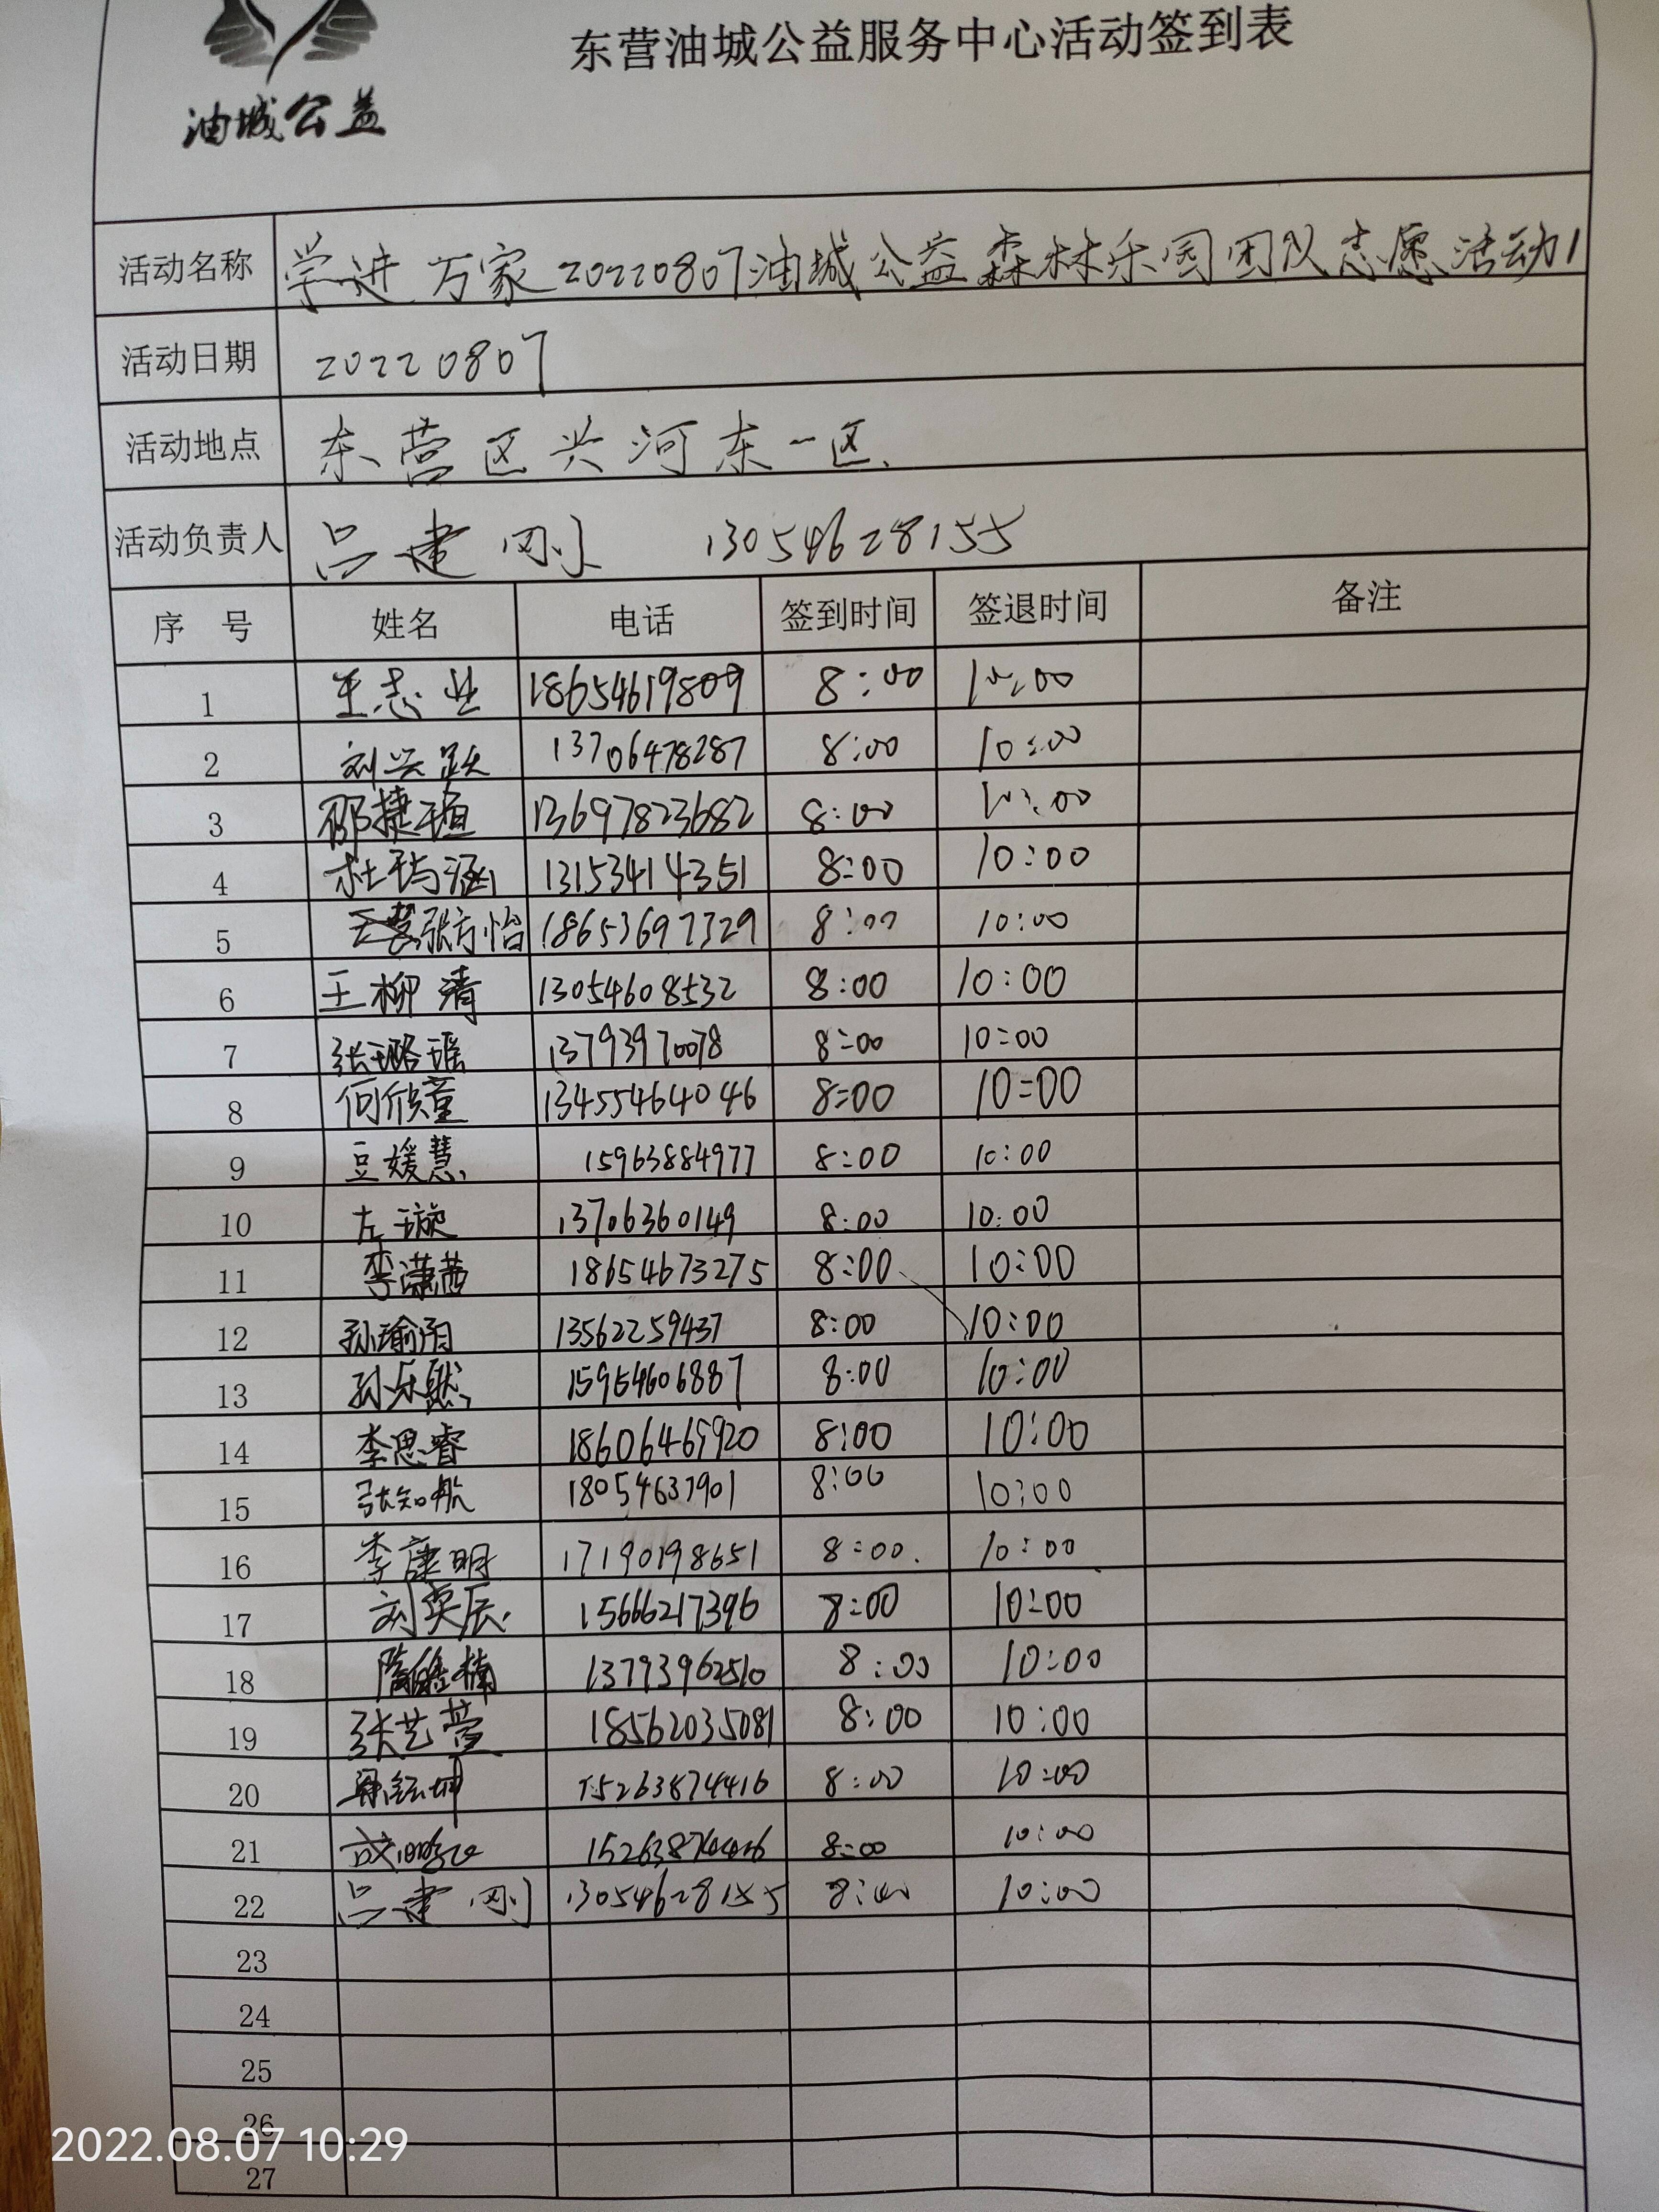 东营油城公益服务中心活动签到表
油城公益
活动名称 学进万家20220807油城公益森林乐园团队志愿活动1
活动日期 20220807
活动地点 东营区兴河东一区
活动负责人 吕建刚 13054628155
序 号 姓名 电话 签到时间 签退时间 备注
1 王志业 18654619809 8:00 10:00
2 刘兴跃 13706478287 8:00 10:00
3 邵捷 13697823682 8:00 10:00
4 杜玙涵 13153414351 8:00 10:00
5 张方怡 18653697329 8:00 10:00
6 王柳清 13054608532 8:00 10:00
7 张璐瑶 13793970078 8:00 10:00
8 何欣董 13455464046 8:00 10:00
9 豆媛慧 15963884977 8:00 10:00
10 左璇 13706360149 8:00 10:00
11 李潇茜 18654673275 8:00 10:00
12 孙瑜 13562259437 8:00 10:00
13 孙乐然 15954606887 8:00 10:00
14 李思睿 18606469920 8:00 10:00
15 张知航 18054637901 8:00 10:00
16 李康明 17190198651 8:00 10:00
17 刘奕辰 15666217396 8:00 10:00
18 隋楠 13793962510 8:00 10:00
19 张艺萱 18562035081 8:00 10:00
20 坤 15263874416 8:00 10:00
21 成 8:00 10:00
22 吕建刚 13054628155 8:00 10:00
23
24
25
26
2022.08.07 10:29
27